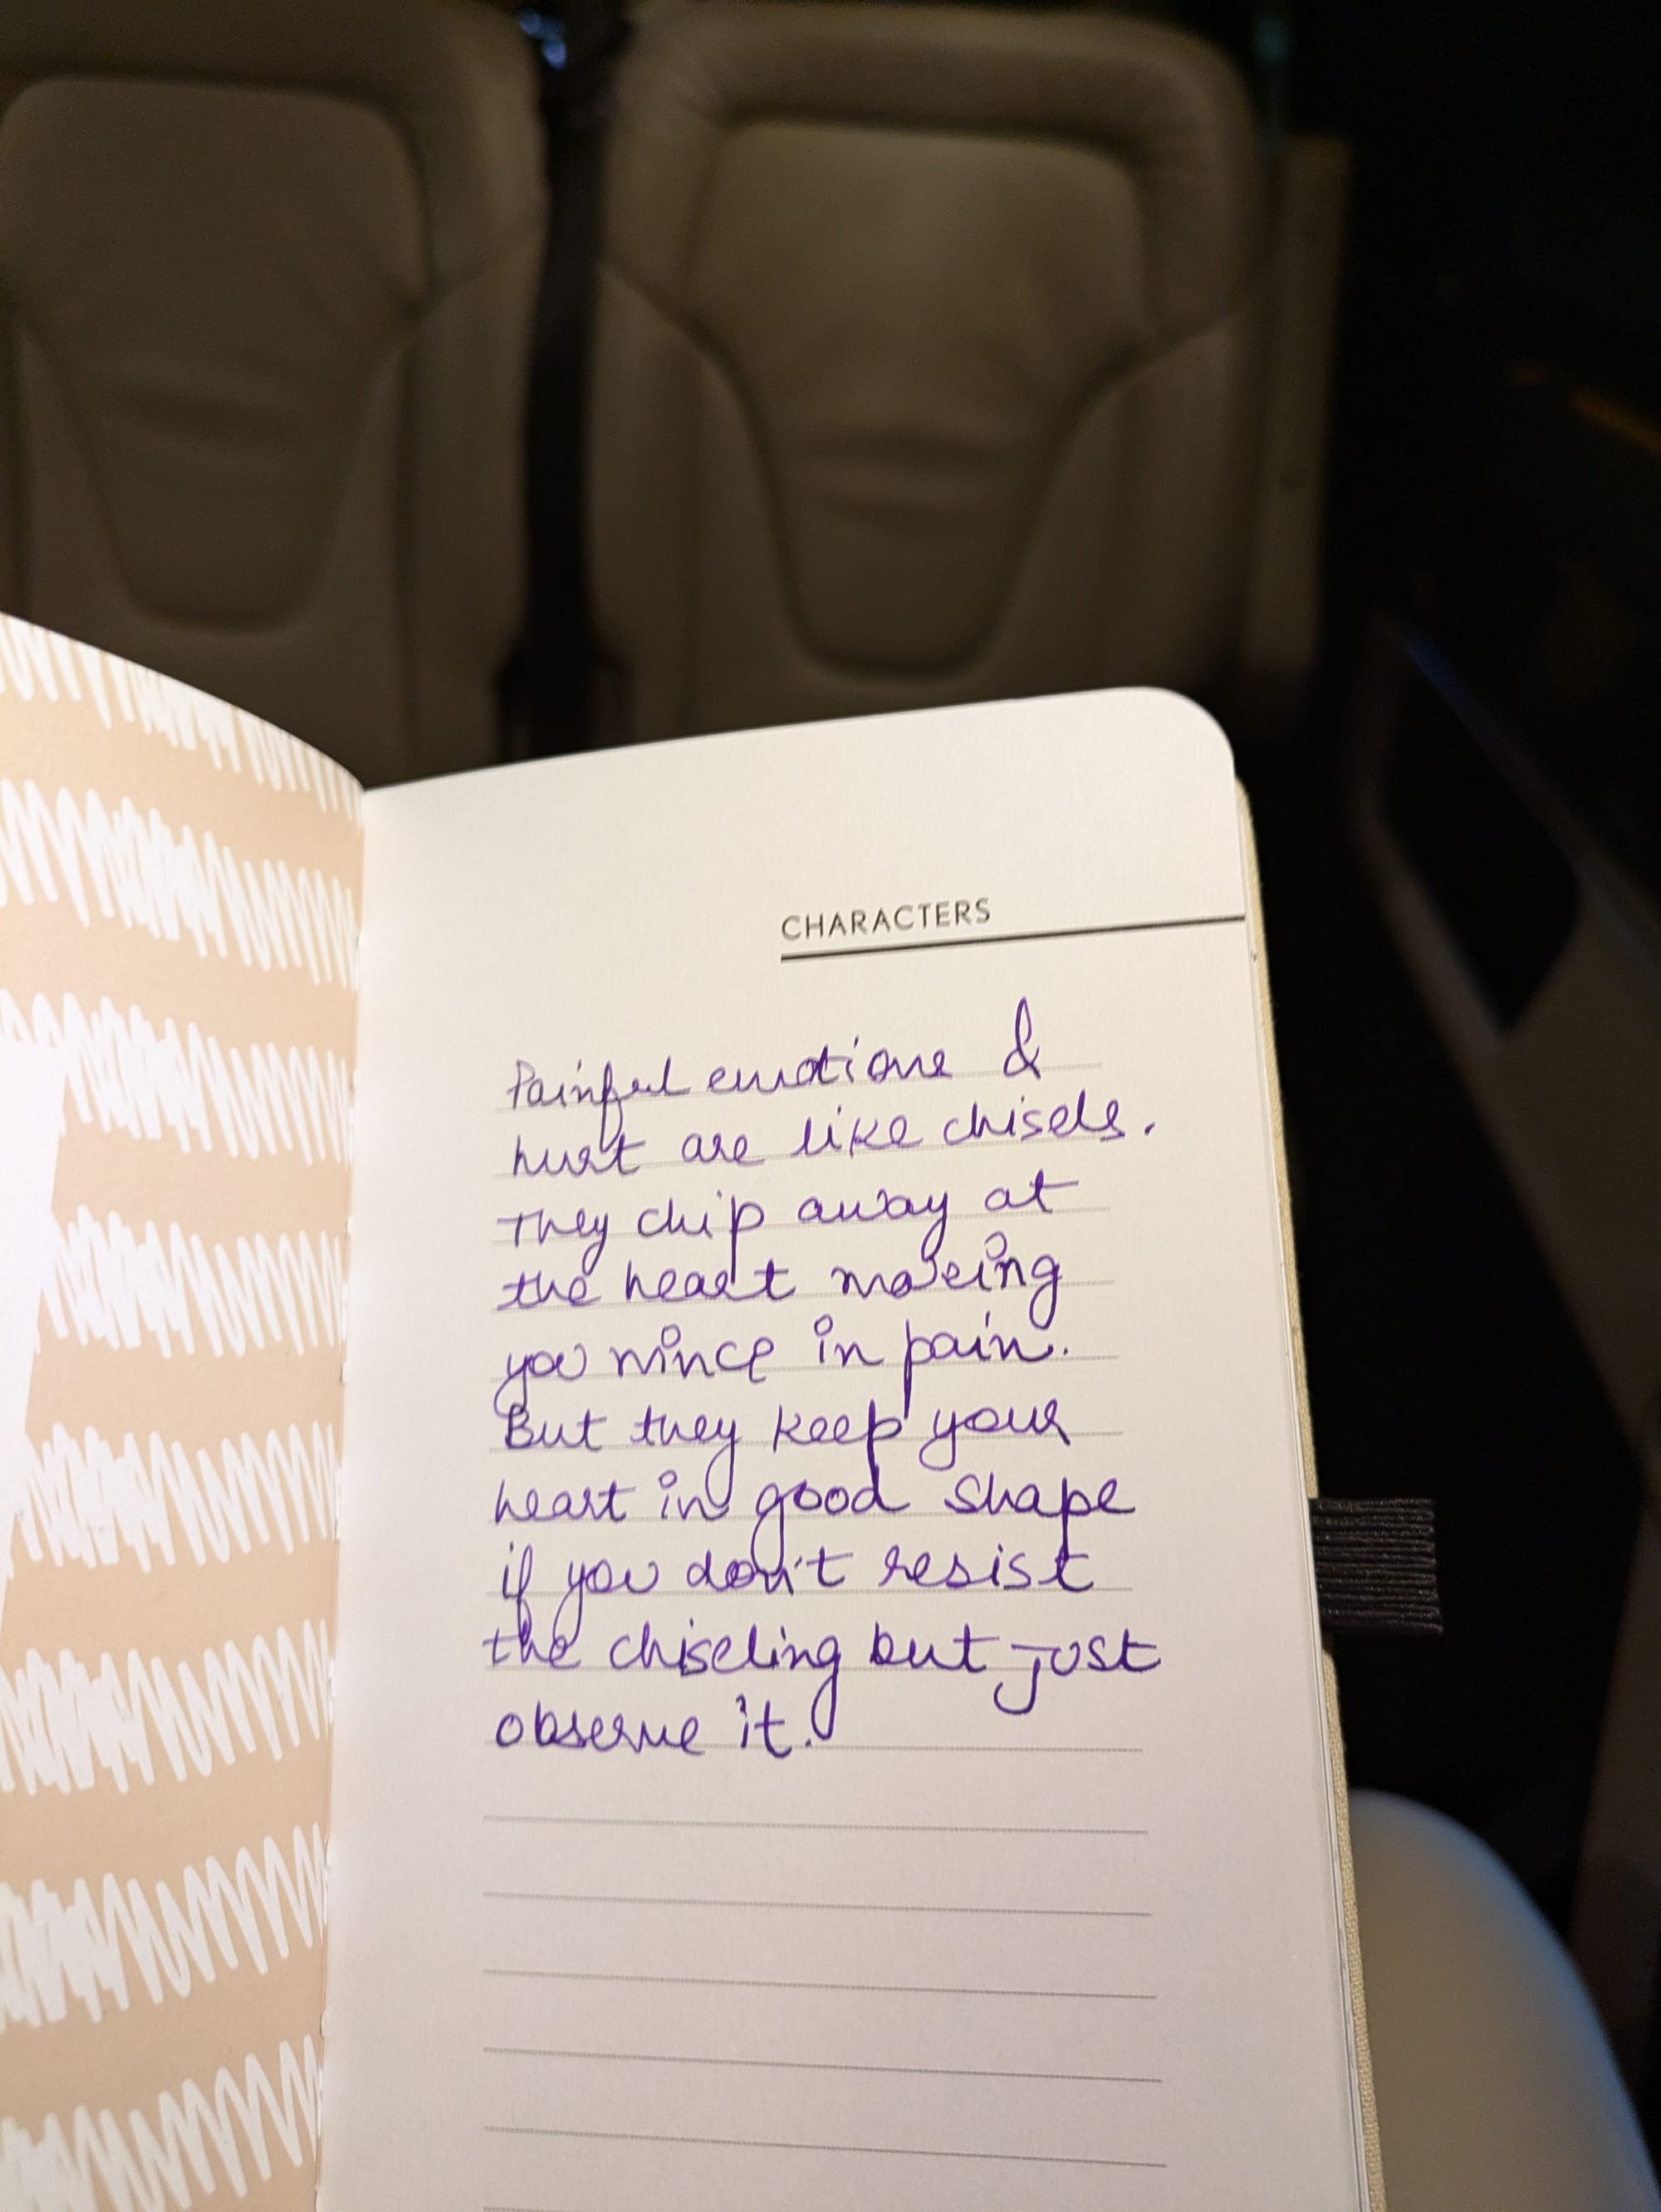 CHARACTERS
Painful emotions &
hurt are like chisels.
They chip away at
the heart making
you wince in pain.
But they keep your
heart in good shape
if you don't resist
the chiseling but just
observe it.